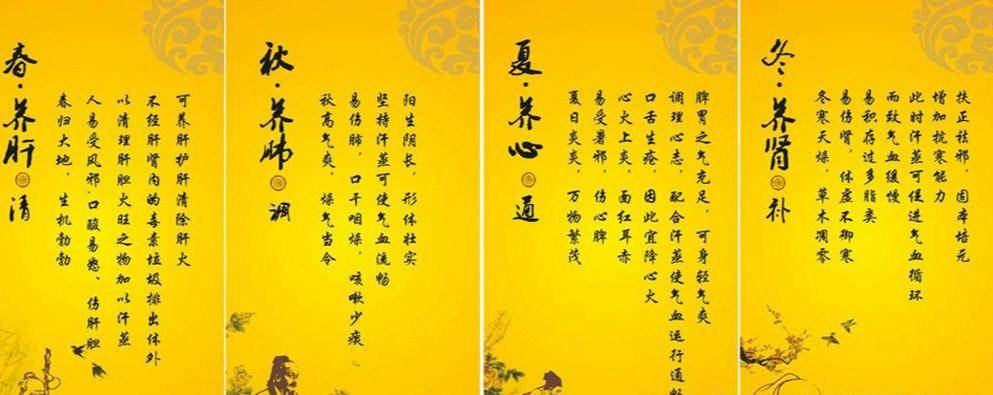 春·养肝 清
春归大地，生机勃勃
人易受风邪·口酸易怒、伤肝胆
以清理肝胆火旺之物加以汗蒸
不经肝肾内的毒素垃圾排出体外
可养肝护肝清除肝火
秋·养肺 调
秋高气爽，燥气当令
易伤肺，口干咽燥，咳嗽少痰
坚持汗蒸可使气血流畅
阳生阴长，形体壮实
夏·养心 通
夏日炎炎，万物繁茂
易受暑邪，伤心脾
心火上炎，面红耳赤
口舌生疮，因此宜降心火
调理心志，配合汗蒸使气血运行通畅
脾胃之气充足，可身轻气爽
冬·养肾 补
冬寒天燥，草木凋零
易伤肾，体虚不御寒
易积存过多脂类
而致气血缓慢
此时汗蒸可促进气血循环
增加抗寒能力
扶正祛邪，固本培元